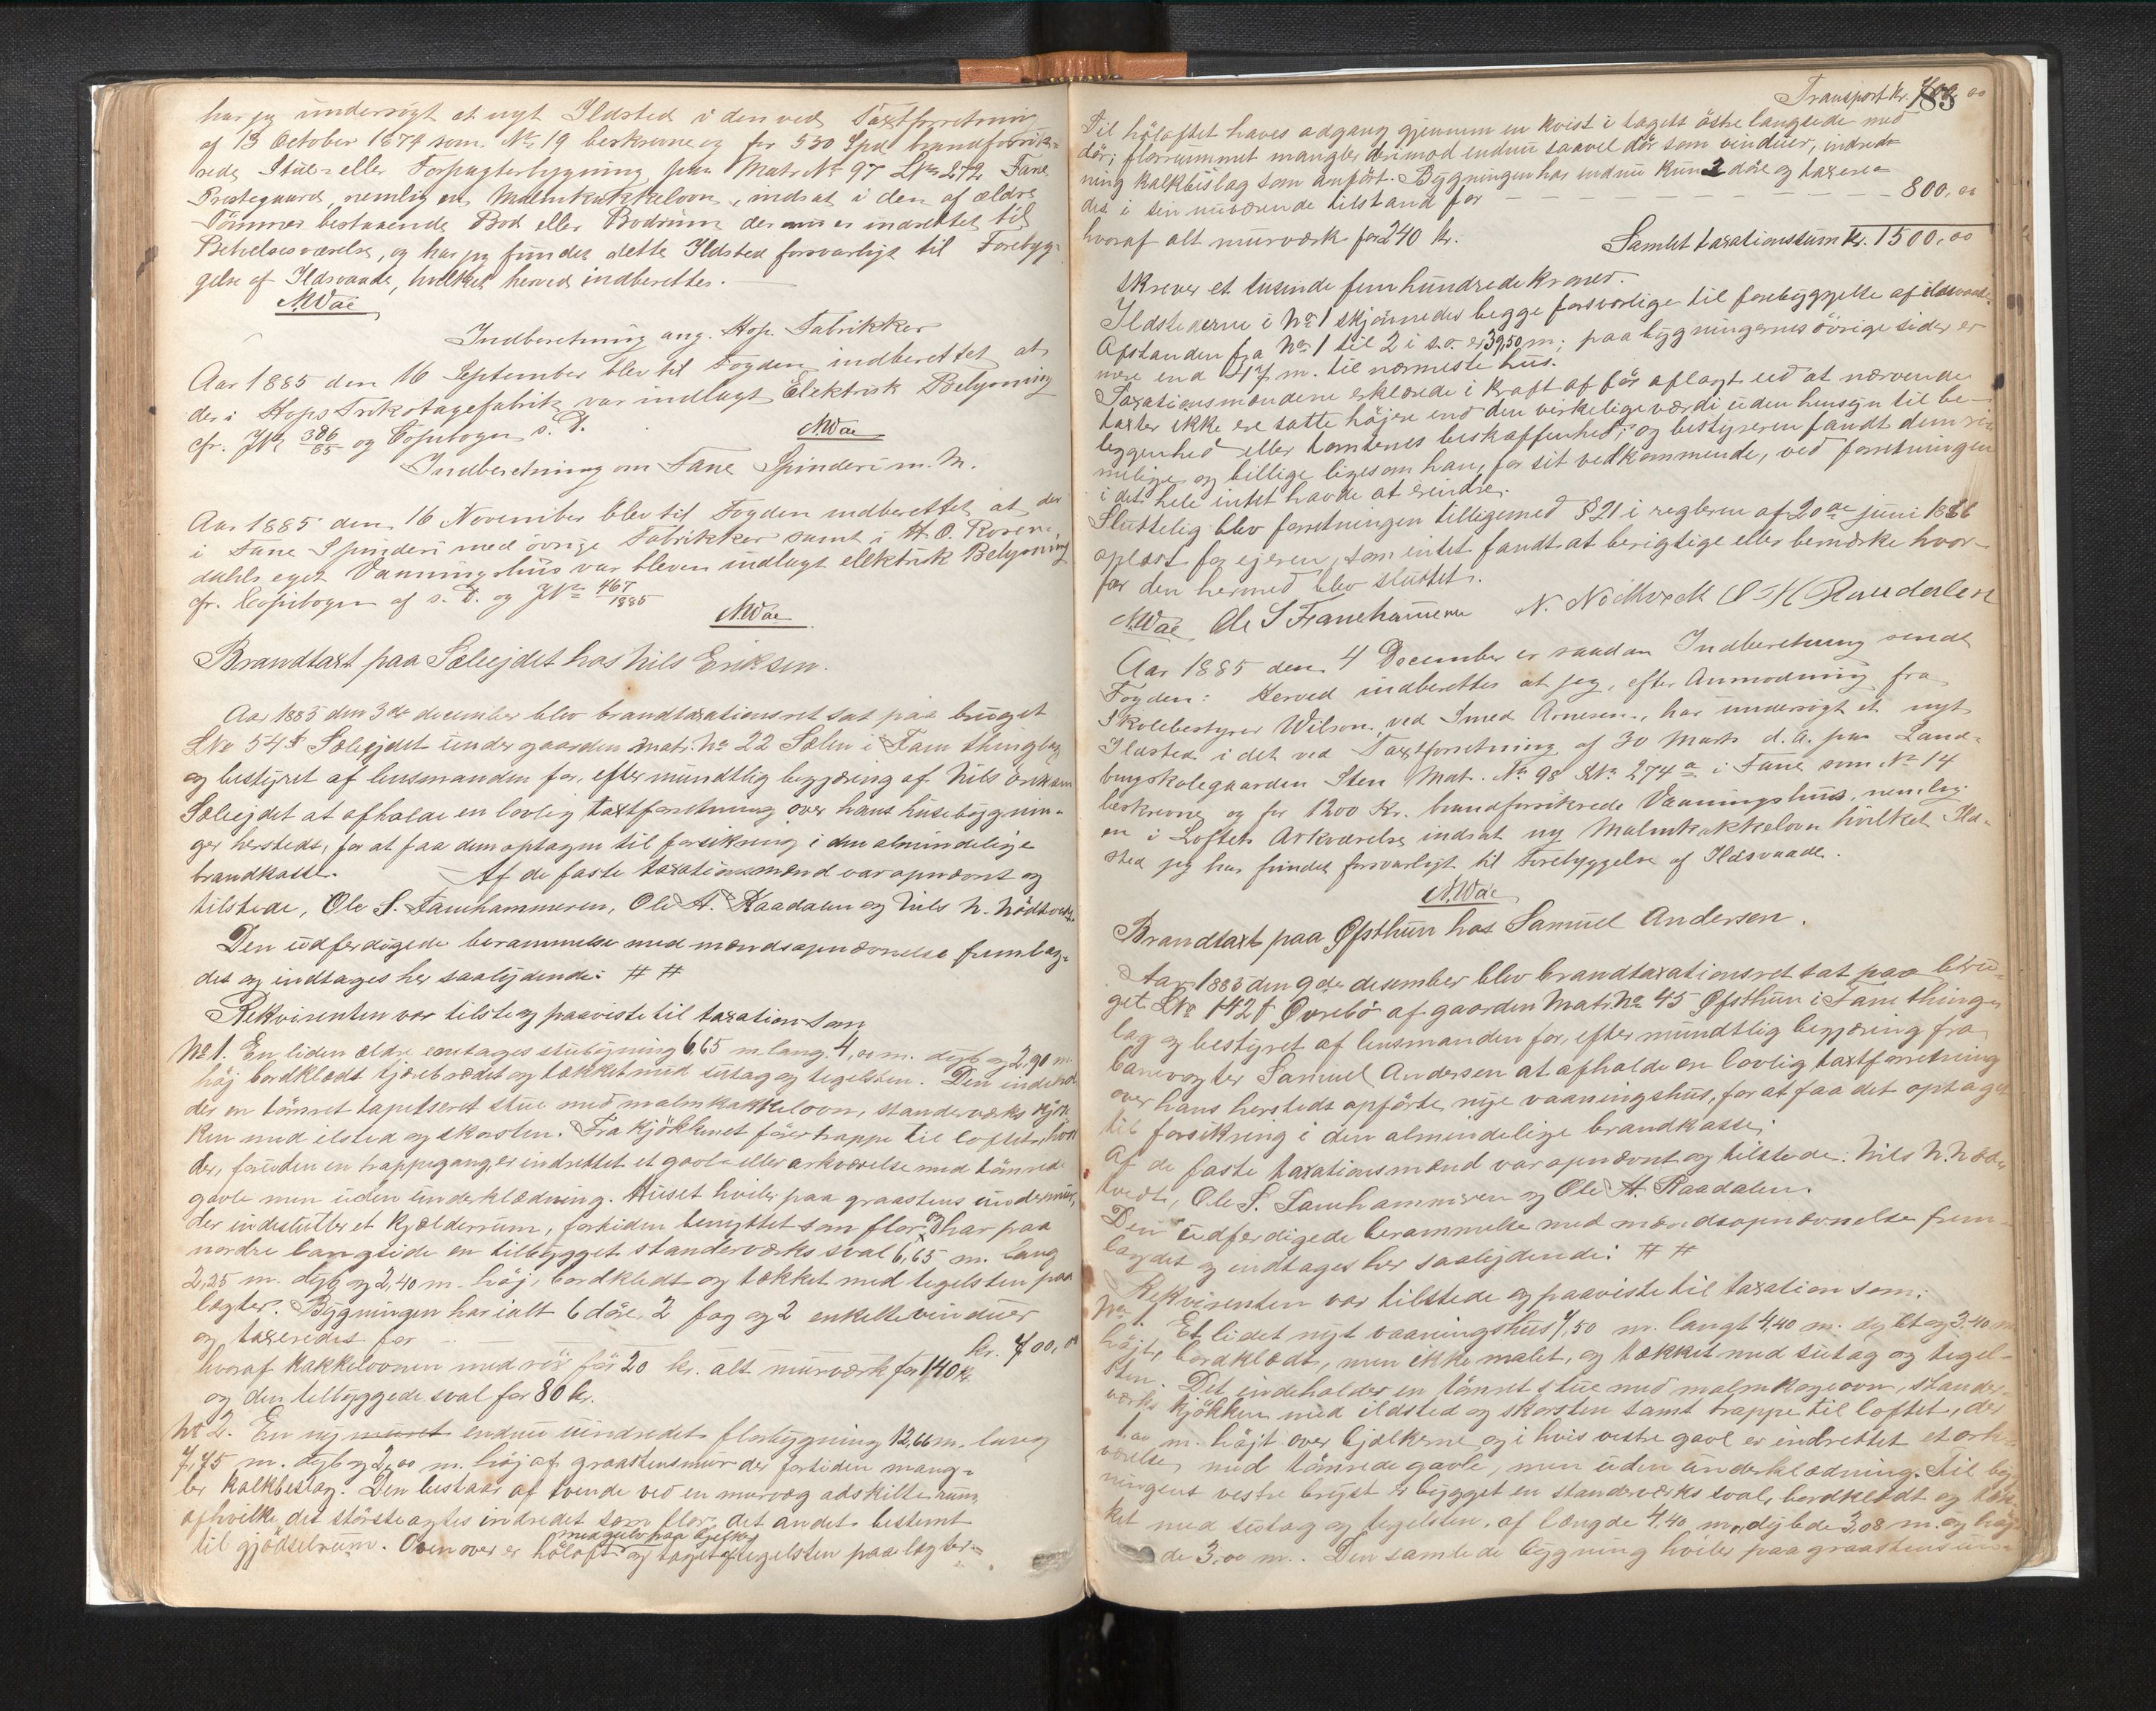 har jeg undersøgt et nyt Ildsted i den ved Taxtforretning
af 13 October 1879 som No 19 beskrevne og for 530 Spd brandforsik-
rede Stue- eller Forpagterbygning paa Matr No 97 LNo 272 Fane
Prestegaard, nemlig en Malmkakkelovn, indsat i den af ældre
Tømmer bestaaende Bod eller Bodrum der nu er indrettet til
Beboelsesværelse, og har jeg fundet dette Ildsted forsvarligt til Forebyg-
gelse af Ildsvaade, hvilket herved indberettes.
N.Wae
Indberetning ang. Hop Fabrikker
Aar 1885 den 16 September blev til Fogden indberettet at
der i Hops Trikotagefabrik var indlagt Elektrisk Belysning
cfr. JNo 386/85 og Copibogen s. D.
N.Wae
Indberetning om Fane Spinderi m. M.
Aar 1885 den 16 November blev til Fogden indberettet at der
i Fane Spinderi med øvrige Fabrikker samt i H. O. Rosen-
dahls eget Vaaningshus var bleven indlagt elektrisk Belysning
cfr. Copibogen af s. D. og JNo 467/1885
N.Wae
Brandtaxt paa Sæleejdet hos Nils Eriksen.
Aar 1885 den 3die december blev brandtaxationsret sat paa bruget
LNo 54 f Sæleejdet under gaarden matr. No 22 Sælen i Fam thinglag
og bestyret af lensmanden for, efter mundtlig begjæring af Nils Eriksen
Sæleejdet at afholde en lovlig taxtforretning over hans husebygnin-
ger hersteds, for at faa dem optagen til forsikring i den almindelige
brandkasse. Af de faste taxationsmænd var opnævnt og
tilstede, Ole S. Fanehammeren, Ole A. Raadalen og Nils N. Nödtvedt.
Den udferdigede berammelse med mændsopnævnelse fremlag-
des og indtages her saalydende: # #
Rekvirenten var tilste og paaviste til taxation som
No 1. En liden ældre eenetages stubygning 6,65 m lang. 4,00 m. dyb og 2,90 m.
höj bordklædt tjærebrædet og tækket med sutag og tegelsten. Den indehol-
der en tömret tapetseret stue med malmkakkelovn, standerværks kjök-
ken med ilsted og skorsten. Fra kjökkenet förer trappe til loftet, hvor
der, foruden en trappegang, er indrettet et gavl- eller arkværelse med tömrede
gavle men uden underklædning. Huset hviler paa graastens undermur,
der indeslutter et kjælderrum, fortiden benyttet som flor, & har paa
nordre langside en tilbygget standerværks sval 6,65 m. lang
2,25 m. dyb og 2,40 m. höj, bordklædt og tækket med tegelsten paa
lægter. Bygningen har ialt 6 döre, 2 fag og 2 enkelte vinduer
og taxeredes for kr. 700,00
hvoraf kakkelovnen med rör för 20 kr. alt murværk for 140 kr.
og den tilbyggede sval for 80 kr.
No 2. En ny muret endnu uindredet florbygning 12,66 m. lang
7,75 m. dyb og 2,00 m. höj af graastensmur der fortiden mang-
ler kalkbeslag. Den bestaar af tvende ved en murvæg adskilte rum,
af hvilke det störste agtes indredet som flor, det andet bestemt
med gulv paa bjelker
til gjödselrum. Ovenover er höloft og taget af tegelsten paa lægter.
Transport kr. 700,00
183
Til höloftet haves adgang gjennem en kvist i tagets östre langside med
dör; florrummet mangler derimod endnu saavel dör som vinduer, indred-
ning kalkbislag som anfört. Bygningen har endnu kun 2 döre og taxere-
des i sin nuværende tilstand for 800,00
hvoraf alt murværk for 240 kr. Samlet taxationssum kr. 1500,00
skriver et tusinde femhundrede kroner.
Ildstederne i No 1 skjönnedes begge forsvarlige til forebyggelse af ildsvaade.
Afstanden fra No 1 til 2 i s.o. er 39,50 m; paa bygningernes övrige sider er
mere end 47 m. til nærmeste hus.
Taxationsmændene erklærede i kraft af för aflagt eed at nærvende
taxter ikke ere satte höjere end den virkelige værdi uden hensyn til be-
liggenhed eller tomtens beskaffenhed; og bestyreren fandt dem ri-
melige og billige ligesom han, for sit vedkommende, ved forretningen
i det hele intet havde at erindre.
Sluttelig blev forretningen tilligemed § 21 i reglerne af 20de juni 1886
oplæst for ejeren, som intet fandt at berigtige eller bemærke hvor-
for den hermed blev sluttet.
N.Wae Ole S Fanehammeren N. Nödtvedt O A Raadalen
Aar 1885 den 4 December er saadan Indberetning sendt
Fogden: Herved indberettes at jeg, efter Anmodning fra
Skolebestyrer Wilson, ved Smed Arnesen, har undersøgt et nyt
Ildsted i det ved Taxtforretning af 30 Marts d. A. paa Land-
brugskolegaarden Sten Mat. No 98 LNo 274 a i Fane som No 14
beskrevne og for 1200 Kr. brandforsikrede Vaaningshus, nemlig
en i Loftets Arkværelse indsat ny Malmkakkelovn hvilket Ild-
sted jeg har fundet forsvarligt til Forebyggelse af Ildsvaade.
N.Wae
Brandtaxt paa Øfsthun hos Samuel Andersen.
Aar 1885 den 9de desember blev brandtaxationsret sat paa bru-
get LNo 142 f Øvrebö af gaarden Matr. No 45 Øfsthun i Fane thing-
lag og bestyret af lensmanden for, efter mundtlig begjæring fra
banevogter Samuel Andersen at afholde en lovlig taxtforretning
over hans hersteds opförte nye vaaningshus, for at faa det optaget
til forsikring i den almindelige brandkasse.
Af de faste taxationsmænd var opnævnt og tilstede: Nils N. Nöd-
tvedt, Ole S. Fanehammeren og Ole A. Raadalen.
Den udferdigede berammelse med mændsopnævnelse frem-
lagdes og indtages her saalydende: # #
Rekvirenten var tilstede og paaviste til taxation som:
No 1. Et lidet nyt vaaningshus 7,50 m. langt 4,40 m. dybt og 3,40 m
höjt, bordklædt, men ikke malet, og tækket med sutag og tegel-
sten. Det indeholder en tömret stue med malmkogeovn, stander-
værks kjökken med ildsted og skorsten samt trappe til loftet, der
m. höjt over bjelkerne og i hvis vestre gavl er indrettet et ark-
værelse med tömrede gavle, men uden underklædning. Til byg-
ningens vestre bryst er bygget en standerværks sval, bordklædt og tæk-
ket med sutag og tegelsten, af længde 4,40 m, dybde 3,08 m. og höj-
de 3,00 m. Den samlede bygning hviler paa graastensun-